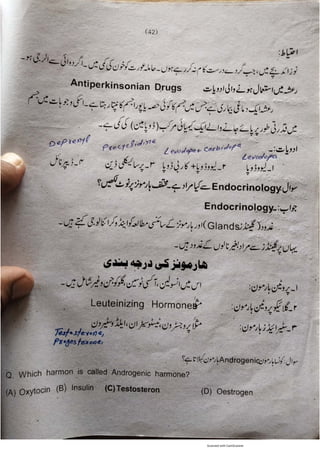 (42)
احتیاط:
نوزائد بچے میں، جب گردے درست کام نہ کر رہے ہوں۔ حاملہ عورت کو خون کی کمی میں۔ اگر دوائی سے الرجی ہو۔
رعشہ میں استعمال ہونے والی ادویات Antiperkinsonian Drugs
رعشہ ایک دماغی بیماری ہے جس میں جسم کا کوئی حصہ یا پورا جسم کانپتا رہتا ہے۔ اسکی وجوہات میں جسم
میں قدرتی طور پر پائے جانے والے ایک کیمیائی مرکب (ڈوپامین) کی کمی ہے۔
Deprenyl Procyclidine Levodopa+Carbidopa Levodopa
ادویات:۔ ۱۔ لیووڈوپا ۲۔ لیووڈوپا + کاربی ڈوپا ۳۔ پرسائیکلی ڈین ۴۔ ڈیپرنائل
سوال: Endocrinology سے کیا مراد ہے۔ مختلف ہارمونز پر نوٹ لکھیں؟
جواب:۔ Endocrinology
غدود (گلینڈز Glands) اور ہارمونز کے سائنسی مطالعہ کو اینڈوکرائنالوجی کہتے ہیں۔
یہاں پر گلینڈز سے مراد بغیر نالیوں کے غدود ہیں۔
ھارمونز کی درجہ بندی
۱۔ پروٹین ہارمون: اس میں انسولین، آکسی ٹوسین، گلوکوجن وغیرہ شامل ہیں۔
۲۔ گلائیکو پروٹین ہارمون: مثلاً Leuteinizing Hormones
۳۔ سٹیرائیڈز ہارمون: مثلاً پروجسٹرون، ٹیسٹوسٹیران، ایلڈوسٹیرون
Testosterone,
Progesterone,
سوال: کونسا ہارمون Androgenic ہارمون کہلاتا ہے؟
Q. Which harmon is called Androgenic harmone?
(A) Oxytocin (B) Insulin (C) Testosteron (D) Oestrogen
Scanned with CamScanner